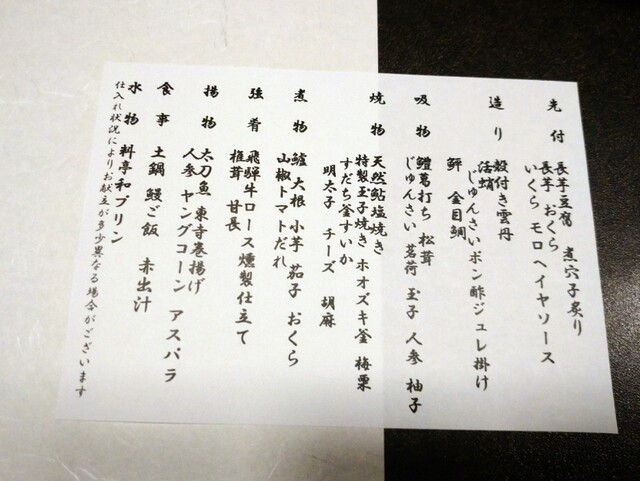 先付 長芋豆腐 煮穴子炙り
長芋 おくら
いくら モロヘイヤソース
造り 殻付き雲丹
じゅんさいポン酢ジュレ掛け
活蛸
鮃 金目鯛
吸物 鱧葛打ち 松茸
じゅんさい 茗荷 玉子 人参 柚子
焼物 天然鮎塩焼き
特製玉子焼き ホオズキ釜 梅栗
すだち釜すいか
明太子 チーズ 胡麻
煮物 鱸 大根 小芋 茄子 おくら
山椒トマトだれ
強肴 飛騨牛ロース燻製仕立て
椎茸 甘長
揚物 太刀魚 東寺巻揚げ
人参 ヤングコーン アスパラ
食事 土鍋 鰻ご飯 赤出汁
水物 料亭和プリン
仕入れ状況によりお献立が多少異なる場合がございます